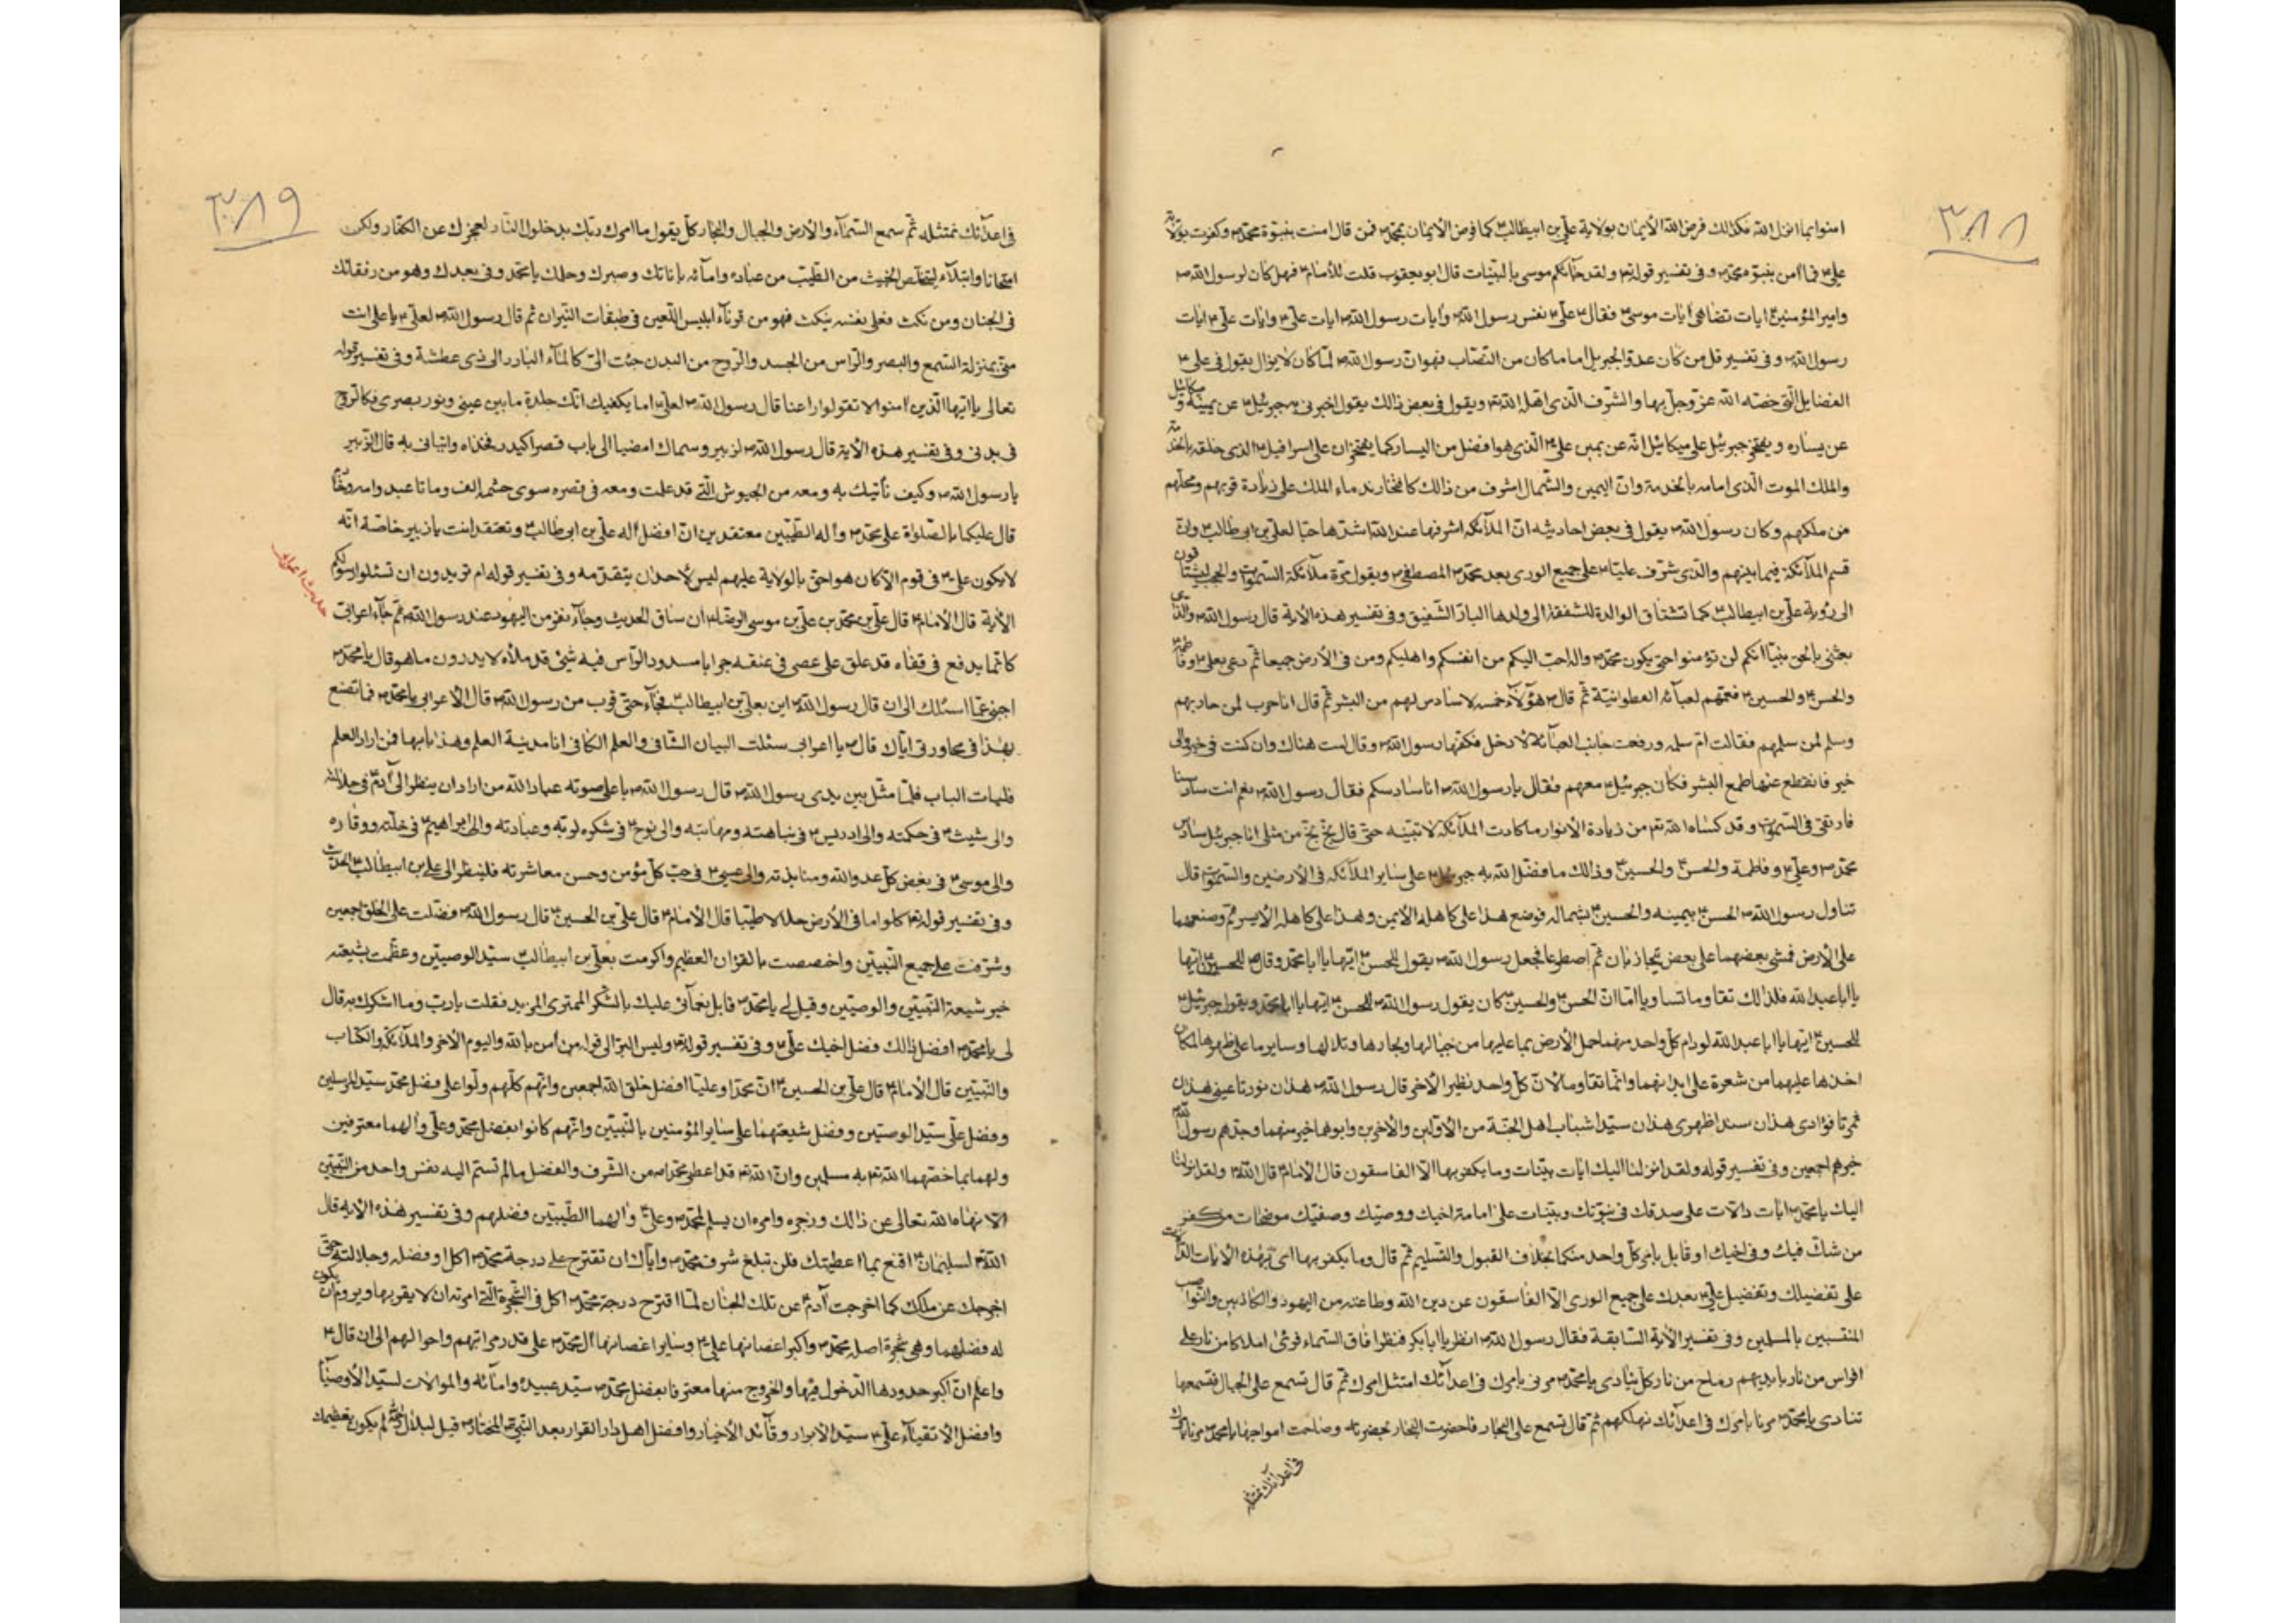 ٣٨٨
امنوا بما انزل الله فكذالك فرض الله الأيمان بولاية علي بن ابيطالب ع كما فرض الأيمان بمحمد ص فمن قال امنت بنبوة محمد ص وكفرت بولاية
علي ع فما امن بنبوة محمد ص وفي تفسير قوله تع ولقد جائكم موسى بالبينات قال ابو يعقوب قلت للأمام ع فهل كان لرسول الله ص
وامير المؤمنين ع ايات تضاهي ايات موسى ع فقال ع علي ع نفس رسول الله ص وايات رسول الله ص ايات علي ع وايات علي ع ايات
رسول الله ص وفي تفسير قل من كان عدوا لجبريل اما ما كان من النصاب فهو ان رسول الله ص لما كان لا يزال يقول في علي ع
الفضايل التي خصه الله عز وجل بها والشرف الذي اهله الله تع ويقول في بعض ذالك يقول اخبرني به جبرئيل ع عن يمينه وميكائيل
عن يساره ويفتخر جبرئيل على ميكائيل انه عن يمين علي ع الذي هو افضل من اليسار كما يفتخران على اسرافيل ع الذي خلفه بالخدمة
والملك الموت الذي امامه بالخدمة وان اليمين والشمال اشرف من ذالك كافتخار ندماء الملك على زيادة قربهم ومحلهم
من ملكهم وكان رسول الله ص يقول في بعض احاديثه ان الملائكة اشرفها عند الله اشدها حبا لعلي بن ابي طالب ع وان
قسم الملائكة فيما بينهم والذي شرف عليا ع على جميع الورى بعد محمد ص المصطفى ويقول مرة ملائكة السموات والحجب ليشتاقون
الى رؤية علي بن ابيطالب ع كما تشتاق الوالدة الشفيقة الى ولدها البار الشفيق وفي تفسير هذه الاية قال رسول الله ص والذي
بعثني بالحق نبيا انكم لن تؤمنوا حتى يكون محمد ص واله احب اليكم من انفسكم واهليكم ومن في الأرض جيعا ثم دعى بعلي ع وفاطمة
والحسن ع والحسين ع فعمهم لعبائه القطوانية ثم قال ع هؤلاء خمسة لا سادس لهم من البشر ثم قال انا حرب لمن حاربهم
وسلم لمن سلمهم فقالت ام سلمه ورفعت جانب العبائة لادخل فكفها رسول الله ص وقال لست هناك وان كنت في خير والى
خير فانقطع عنها طمع البشر فكان جبرئيل ع معهم فقال يا رسول الله ص انا سادسكم فقال رسول الله ص نعم انت سادسنا
فارتقى في السموات وقد كساه الله تع من زيادة الانوار ما كادت الملائكة لا تبينه حتى قال بخ بخ من مثلي انا جبرئيل سادس
محمد ص وعلي ع وفاطمة والحسن ع والحسين ع وذالك ما فضل الله به جبرئيل ع على ساير الملائكة في الأرضين والسموات قال
تناول رسول الله ص الحسن ع بيمينه والحسين ع بشماله فوضع هذا على كاهله الأيمن وهذا على كاهله الأيسر ثم وضعهما
على الأرض فمشى بعضهما على بعض يتجاذبان ثم اصطرعا فجعل رسول الله ص يقول للحسن ع ايها يا ابا محمد وقال ع للحسين ع ايها
يا ابا عبد الله فلذالك تقاوما تساويا اما ان الحسن ع والحسين ع كان يقول رسول الله ص للحسن ايها يا ابا محمد ويقول جبرئيل ع
للحسين ع ايها يا ابا عبد الله لو رام كل واحد منهما حمل الأرض بما عليها من جبالها وبحارها وتلالها وساير ما على ظهرها لكان
اخف عليهما من شعرة على ابدانهما وانما تقاوما لان كل واحد نظير الاخر قال رسول الله ص هذان نورتا عيني هذان
ثمرتا فؤادي هذان سندا ظهري هذان سيدا شباب اهل الجنة من الأولين والأخرين وابوهما خير منهما وجدهم رسول الله
خيرهم اجمعين وفي تفسير قوله ولقد انزلنا اليك ايات بينات وما يكفر بها الا الفاسقون قال الأمام ع قال الله تع ولقد انزلنا
اليك يا محمد ص ايات دالات على صدقك في نبوتك وبينات على امامة اخيك ووصيك وصفيك موضحات من كفر
من شك فيك وفي اخيك او قابل بامر كل واحد منكما بخلاف القبول والتسليم ثم قال وما يكفر بها اي بهذه الايات الدالات
على تفضيلك وتفضيل علي ع بعدك على جميع الورى الا الفاسقون عن دين الله وطاعته من اليهود والكاذبين والنواصب
المتقبين بالمسلمين وفي تفسير الأية السابقة فقال رسول الله ص انظر يا ابا بكر فنظر افاق السماء فرئى املاكا من نار على
افراس من نار بايديهم رماح من نار كل ينادي يا محمد ص مرني بامرك في اعدائك امتثل امرك ثم قال تسمع على الجبال فتسمعها
تنادى يا محمد ص مرنا بامرك في اعدائك نهلكهم ثم قال تسمع على البحار فاحضرت البحار بحضرته وصاحت امواجها يا محمد ص مرنا بامرك
في اعدائك نمتثله
٣٨٩
في اعدائك نمتثله ثم سمع السماء والأرض والجبال والبحار كل يقول ما امرك ربك بدخول النار لعجزك عن الكفار ولكن
امتحانا وابتلاء ليتخلص الخبيث من الطيب من عباده وامائه باناتك وصبرك وحلمك يا محمد وفى بعهدك وهو من رفقائك
في الجنان ومن نكث فعلى نفسه ينكث فهو من قرناء ابليس اللعين في طبقات النيران ثم قال رسول الله ص لعلي ع يا علي انت
مني بمنزلة السمع والبصر والراس من الجسد والروح من البدن حببت الي كالماء البارد الى ذي عطشة وفي تفسير قوله
تعالى يا ايها الذين امنوا لا تقولوا راعنا قال رسول الله ص لعلي ع اما يكفيك انك جلدة ما بين عيني ونور بصري وكالروح
في بدني وفي تفسير هذه الأية قال رسول الله ص لزبير وسماك امضيا الى باب قصر اكيدر فخذاه واتياني به قال الزبير
يا رسول الله ص وكيف نأتيك به ومعه من الجيوش التي قد علمت ومعه في قصره سوى حشمه الف وماتا عبد وامة وخادم
قال عليكما بالصلوة على محمد ص واله الطيبين معتقدين ان افضل اله علي بن ابي طالب ع وتعتقد انت يا زبير خاصة انه
لا يكون علي ع في قوم الا كان هو احق بالولاية عليهم ليس لأحد ان يتقدمه وفي تفسير قوله ام تريدون ان تسئلوا رسولكم
حديث اعرابي
الأية قال الأمام ع قال علي بن محمد بن علي بن موسى الرضا ع ان ساق الحديث وجاء نفر من اليهود عند رسول الله ص ثم جاء اعرابي
كانما يدفع في قفاه قد علق على عصى في عنقه جرابا مسدود الراس فيه شيئ قد ملأه لا يدرون ما هو قال يا محمد ص
اجبني عما اسئلك الى ان قال رسول الله ص اين علي بن ابيطالب ع فجاء حتى قرب من رسول الله ص قال الأعرابي يا محمد ص فما تصنع
بهذا في محاورتي اياك قال ص يا اعرابي سئلت البيان الشافي والعلم الكافي انا مدينة العلم وهذا بابها فمن اراد العلم
فليأت الباب فلما مثل بين يدي رسول الله ص قال رسول الله ص باعلى صوته عباد الله من اراد ان ينظر الى ادم ع في جلالته
والى شيث ع في حكمته والى ادريس ع في نباهته ومهابته والى نوح ع في شكره لربه وعبادته والى ابراهيم ع في خلته ووقاره
والى موسى ع في بغض كل عدو الله ومنابذته والى عيسى ع في حب كل مؤمن وحسن معاشرته فلينظر الى علي بن ابيطالب ع الحديث
وفي تفسير قوله تع كلوا مما في الأرض حلالا طيبا قال الأمام ع قال علي بن الحسين ع قال رسول الله ص فضلت على الخلق اجمعين
وشرفت على جميع النبيين واخصصت بالقران العظيم واكرمت بعلي بن ابيطالب ع سيد الوصيين وعظمت بشيعته
خير شيعة النبيين والوصيين وقيل لي يا محمد ص قابل نعمائي عليك بالشكر الممتري المزيد فقلت يا رب وما اشكرك به قال
لي يا محمد ص افضل ذالك فضل اخيك علي ع وفي تفسير قوله تع وليس البر الى قوله من أمن بالله واليوم الأخر والملائكة والكتاب
والنبيين قال الأمام ع قال علي بن الحسين ع ان محمدا وعليا افضل خلق الله اجمعين وانهم كلهم دلوا على فضل محمد سيد المرسلين
وفضل علي سيد الوصيين وفضل شيعتهما على ساير المؤمنين بالنبيين وانهم كانوا بفضل محمد وعلي وألهما معترفين
ولهما بما خصهما الله تع به مسلمين وان الله تع قد اعطى محمدا ص من الشرف والفضل ما لم تستم اليه نفس واحد من النبيين
الا نهاه الله تعالى عن ذالك وزجره وامره ان يسلم لمحمد ص وعلي ع وألهما الطيبين فضلهم وفي تفسير هذه الايه قال
الله تع لسليمان ع اقنع بما اعطيتك فلن تبلغ شرف محمد ص واياك ان تقترح على درجة محمد ص اكلا وفضله وجلالته حتى
اخرجك عن ملكك كما اخرجت أدم ع عن تلك الجنان لما اقترح درجة محمد ص اكل في الشجرة التي امرته ان لا يقربها ويروم ان يكون
له فضلهما وهي شجرة اصلها محمد ص واكبر اغصانها علي ع وساير اغصانها أل محمد ص على قدر مراتبهم واحوالهم الى ان قال ع
واعلم ان اكبر حدودها الدخول فيها والخروج منها معترفا بفضل محمد ص سيد عبيده وامائه والموالات لسيد الأوصياء
وافضل الأتقياء علي ع سيد الأبرار وقائد الأخيار وافضل اهل دار القرار بعد النبي المختار ص قيل لم يكون تعظيمك